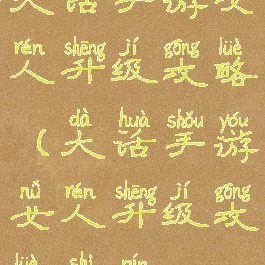 大话手游女
rén shēng jí gōng lüè
人升级攻略
dà huà shǒu yóu
(大话手游
nǚ rén shēng jí gōng
女人升级攻
lüè shì pín